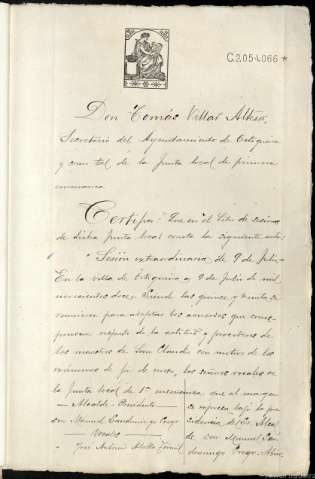 C.2.054.066*
Don Tomás Villar
Secretario del Ayuntamiento de Ortigueira
y como tal de la Junta local de primera
enseñanza
Certifico: Que en el libro de sesiones
de dicha Junta local consta la siguiente acta:
"Sesión extraordinaria de 9 de Julio.
En la villa de Ortigueira a 9 de Julio de mil
novecientos doce. Siendo las quince y treinta se
reunieron para adoptar los acuerdos que
respecto de la actitud y proceder de
los maestros de San Claudio con motivo de los
exámenes de fin de curso, los señores vocales de
la Junta local de 1ª enseñanza que al margen
Alcalde-Presidente
Don Manuel Santomingo
Vocales
José Antonio
se expresan bajo la presidencia del Sr. Alcalde
don Manuel San